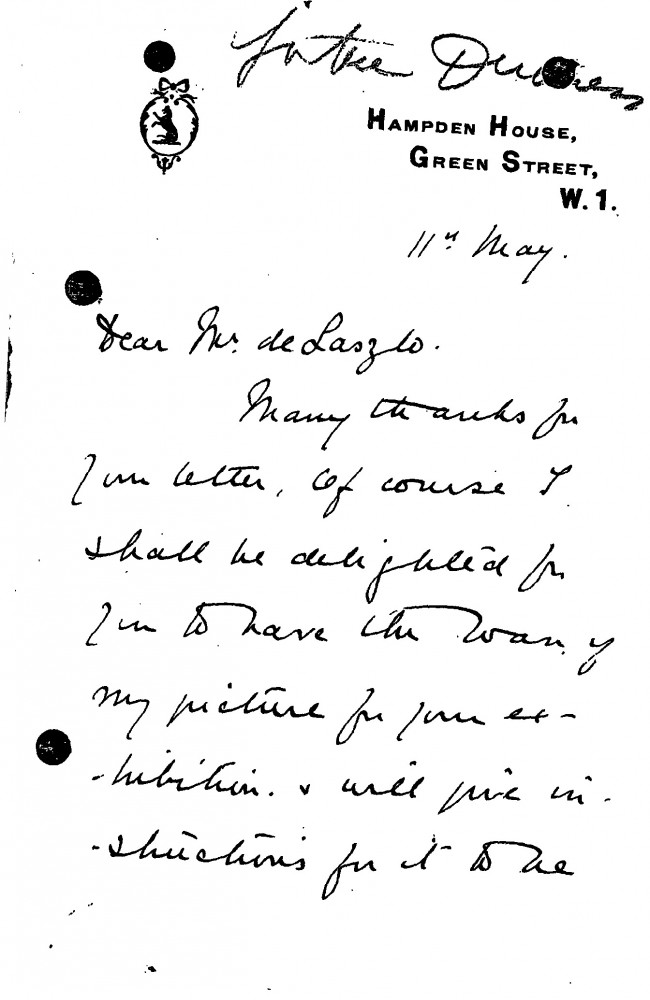 Duchess
HAMPDEN HOUSE,
GREEN STREET,
W. 1.
11th May.
Dear Mr. de Laszlo.
Many thanks for
your letter, Of course I
shall be delighted for
you to have the loan of
my picture for your ex-
-hibition. & will give in-
-structions for it to be